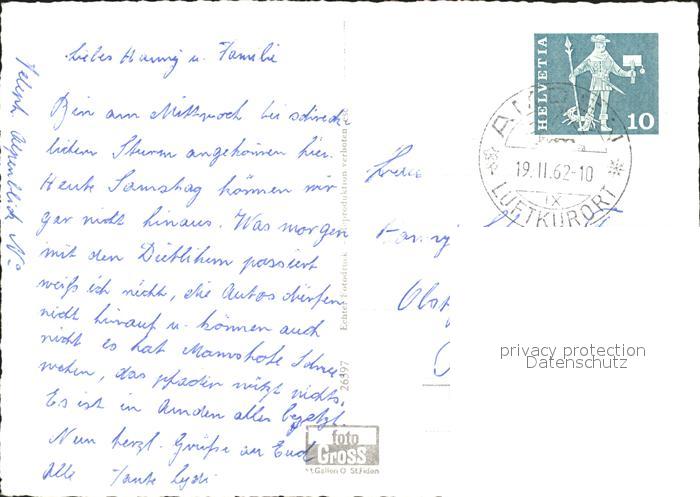 Liebes Hanny u. Familie
Bin am Mittwoch bei schreck
lichem Sturm angekommen hier.
Heute Samstag können wir
gar nicht hinaus. Was morgen
mit den Dietlikern passiert
weiß ich nicht, die Autos dürfen
nicht hinauf u. können auch
nicht es hat Mannshohe Schnee
wehen, das pfaden nützt nichts.
Es ist in Amden alles besetzt.
Nun herzl. Grüße an Euch
alle Tante Lydi
Teleph. Alpenblick No
26397 Echter Fotodruck Reproduktion verboten
foto
Gross
St.Gallen O St.Fiden
HELVETIA
10
AMDEN
19.II.62-10
IX
LUFTKURORT
privacy protection
Datenschutz